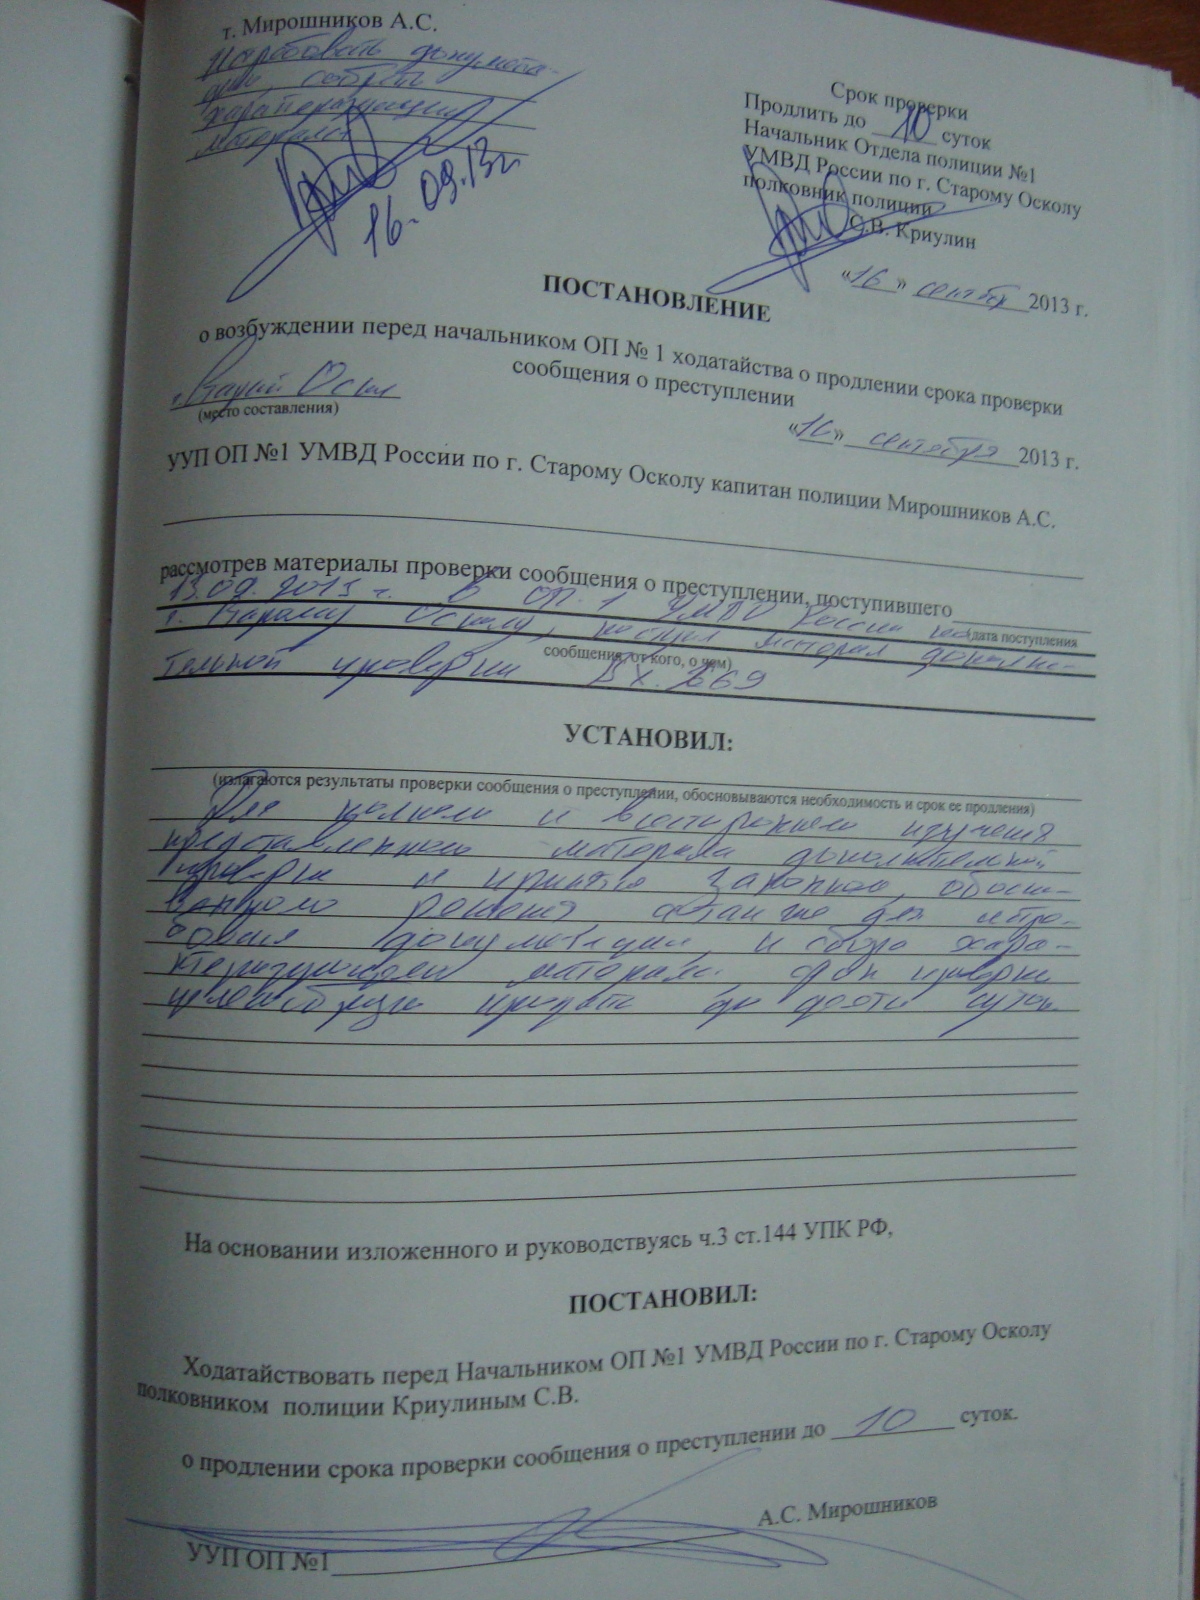 т. Мирошников А.С.
Истребовать документа-
цию, собрать
характеризующий
материал
16.09.13г.
Срок проверки
Продлить до 10 суток
Начальник Отдела полиции №1
УМВД России по г. Старому Осколу
полковник полиции
С.В. Криулин
«16» сентября 2013 г.
ПОСТАНОВЛЕНИЕ
о возбуждении перед начальником ОП № 1 ходатайства о продлении срока проверки
сообщения о преступлении
г. Старый Оскол
(место составления)
«16» сентября 2013 г.
УУП ОП №1 УМВД России по г. Старому Осколу капитан полиции Мирошников А.С.
рассмотрев материалы проверки сообщения о преступлении, поступившего
13.09.2013 г. в ОП-1 УМВД России по
(дата поступления
г. Старому Осколу, поступил материал дополни-
сообщения, от кого, о чем)
тельной проверки Вх.
УСТАНОВИЛ:
(излагаются результаты проверки сообщения о преступлении, обосновываются необходимость и срок ее продления)
Для полного и всестороннего изучения
представленного материала дополнительной
проверки и принятия законного, обосно-
ванного решения, а так же для истре-
бования документации, и сбора харак-
теризующего материала срок проверки
целесообразно продлить до десяти суток.
На основании изложенного и руководствуясь ч.3 ст.144 УПК РФ,
ПОСТАНОВИЛ:
Ходатайствовать перед Начальником ОП №1 УМВД России по г. Старому Осколу
полковником полиции Криулиным С.В.
о продлении срока проверки сообщения о преступлении до 10 суток.
УУП ОП №1 А.С. Мирошников